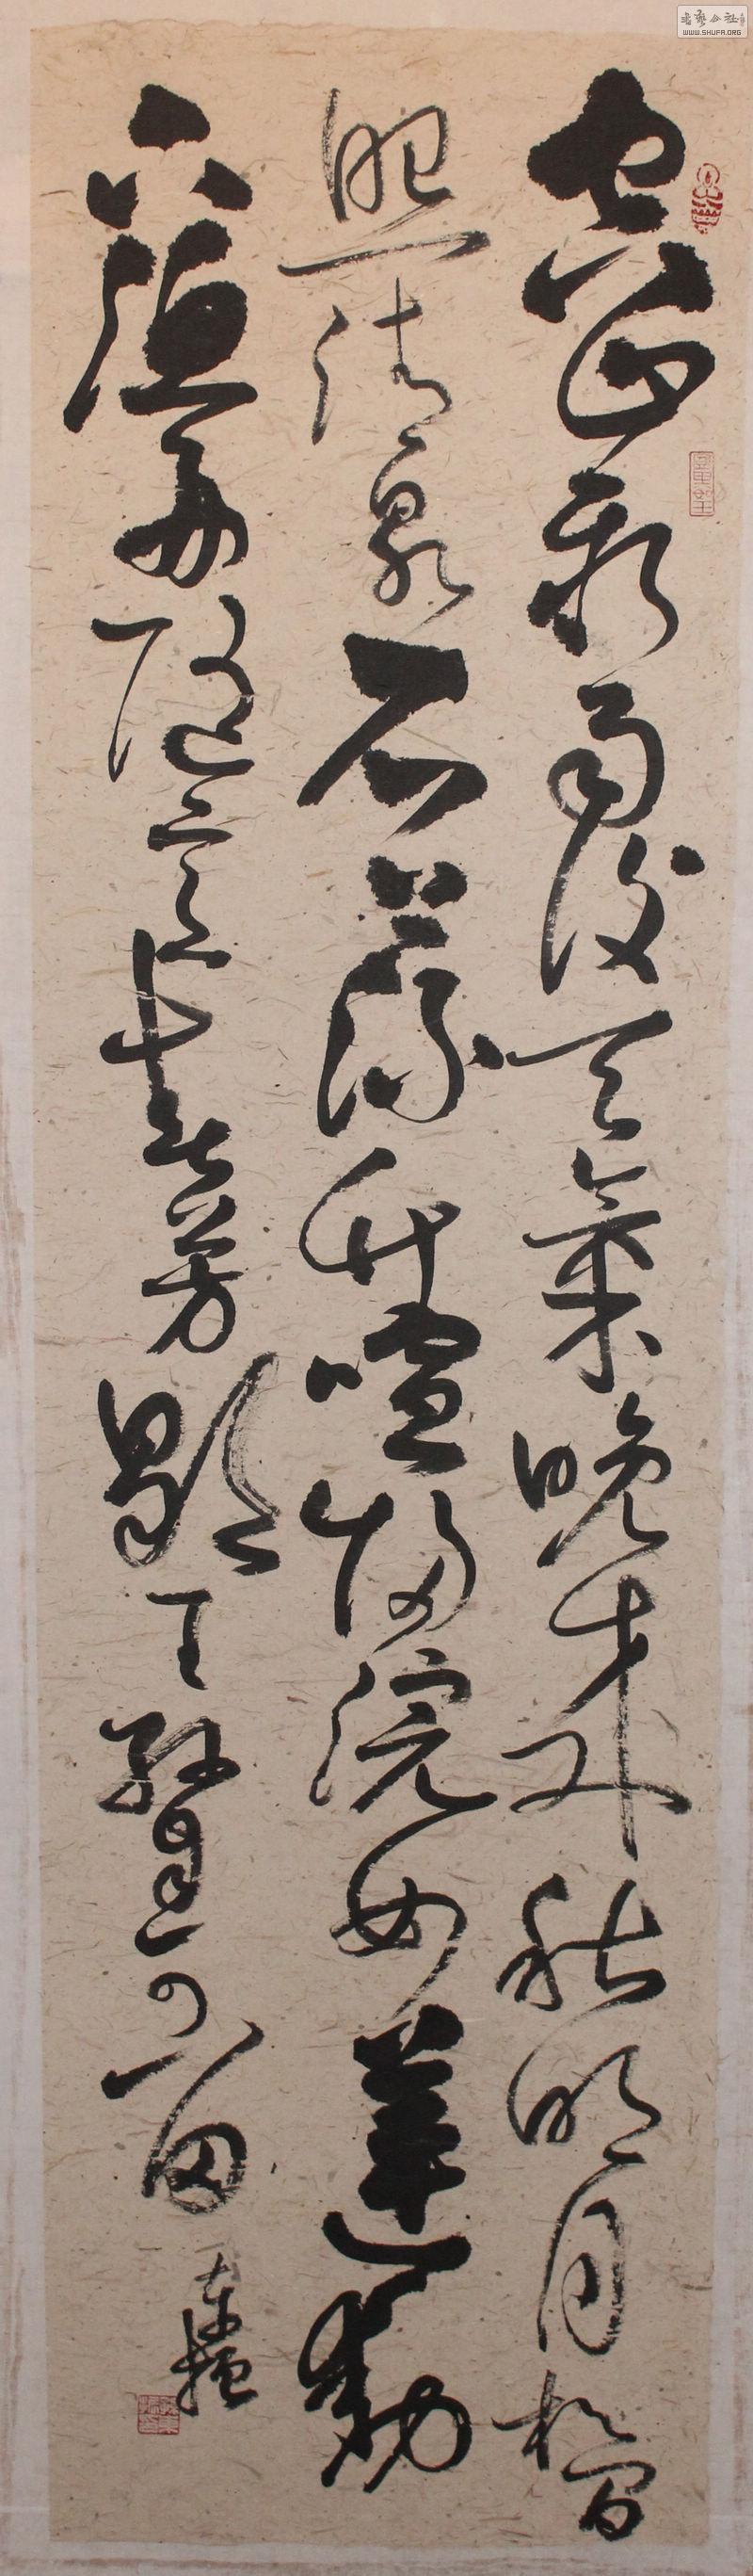 空山新雨後天氣晚来秋明月松間
照清泉石上流竹喧歸浣女蓮動
下漁舟隨意春芳歇王孫自可留
WWW.SHUFA.ORG